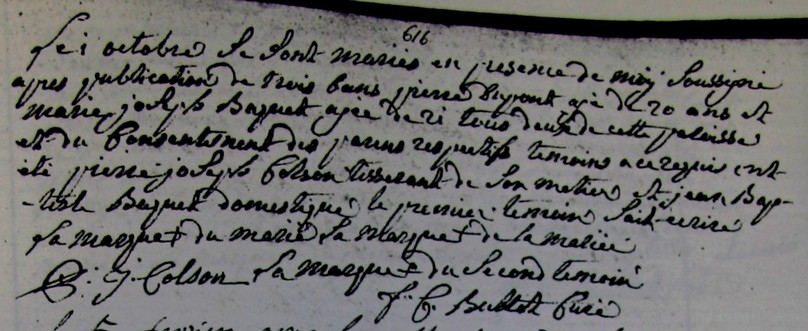 616
Le 1 octobre Se Sont mariés en presence de moy Soussigné
apres publication de trois bans pierre Dupont agé de 20 ans et
marie joseph Baquet agée de 21 tous deux de cette paroisse
et du Consentement des parens respectifs temoins a ce requis ont
eté pierre joseph Colson tisserant de Son metier et jean Bap-
-tiste Baquet domestique le premier temoin Sait ecrire
La marque + du marié La marque + de la mariée
P: J: Colson La marque + du Second temoin
f. C. Bultot Curé